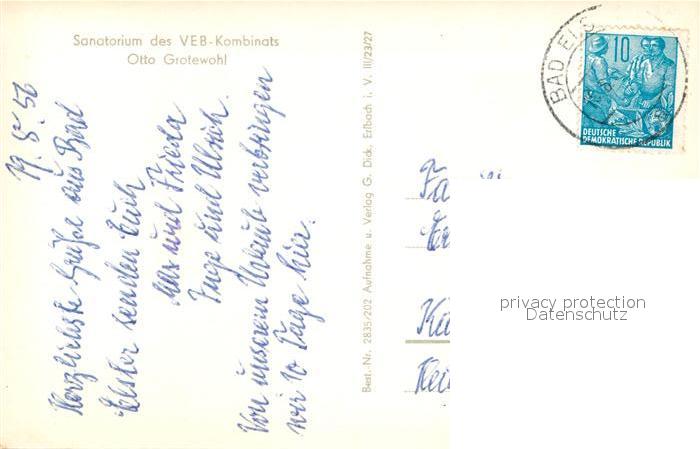 Sanatorium des VEB-Kombinats
Otto Grotewohl
19. 8. 56
Herzlichste Grüße aus Bad
Elster senden Euch
Max und Frieda
Inge und Ulrich.
Von unserem Urlaub verbringen
wir 10 Tage hier.
Best.-Nr. 2835/202 Aufnahme u. Verlag G. Dick, Erlbach i. V. III/23/27
BAD ELS
10
DEUTSCHE
DEMOKRATISCHE REPUBLIK
Fa
privacy protection
Datenschutz